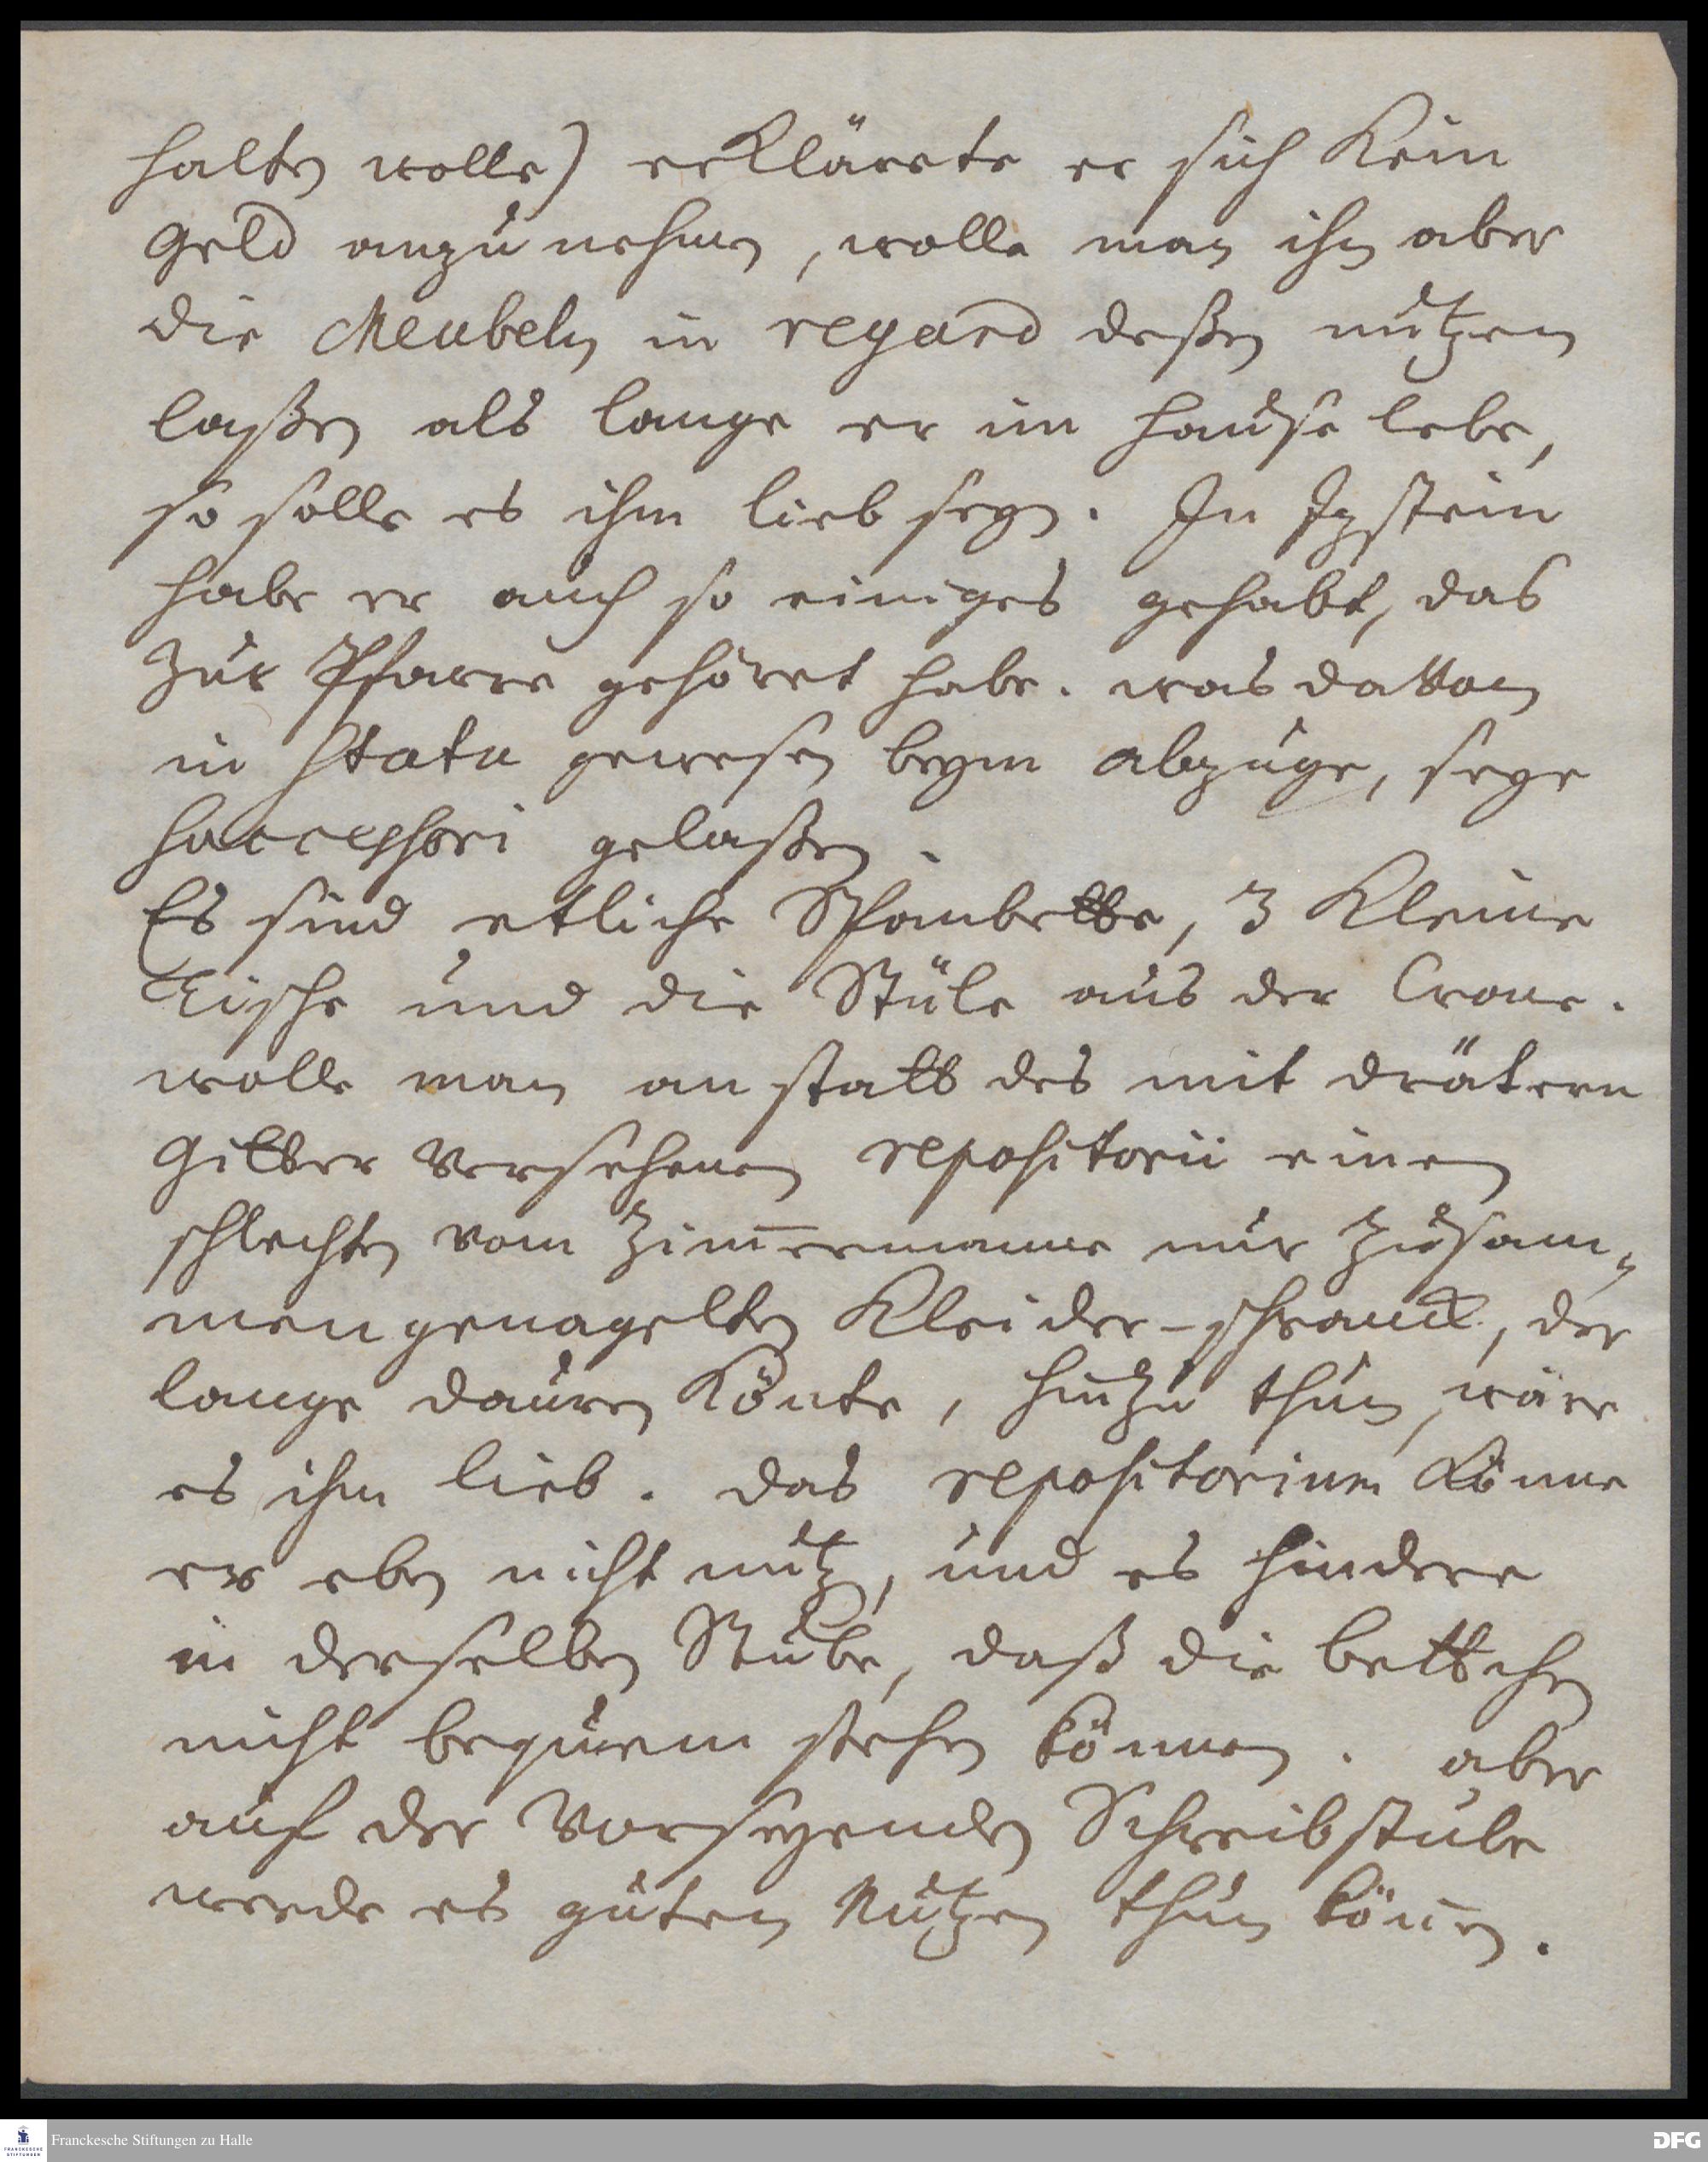 halten wolle) erklärete er sich kein
Geld anzunehmen, wolle man ihn aber
die Meubeln in regard deßen nutzen
laßen als lange er im Hause lebe,
so solle es ihm lieb seyn. In Itzstein
habe er auch so einiges gehabt, das
zur Pfarre gehöret habe. was davon
in statu gewesen beym abzuge, seye
Successori gelaßen.
Es sind etliche Spanbette, 3 kleine
Tische und die Stüle aus der Crone.
wolle man an statt des mit drätern
Gitter versehenen repositorii einen
schlechten vom Zimmermanne nur zusam-
mengenagelten Kleider-schranck, der
lange dauren könte, hinzu thun, wäre
es ihm lieb. das repositorium könne
er eben nicht nutzen, und es hindere
in derselben Stube, daß die bettchen
nicht bequem stehen können. aber
auf der vorseyenden Schreibstube
werde es guten Nutzen thun können.
Franckesche Stiftungen zu Halle
DFG